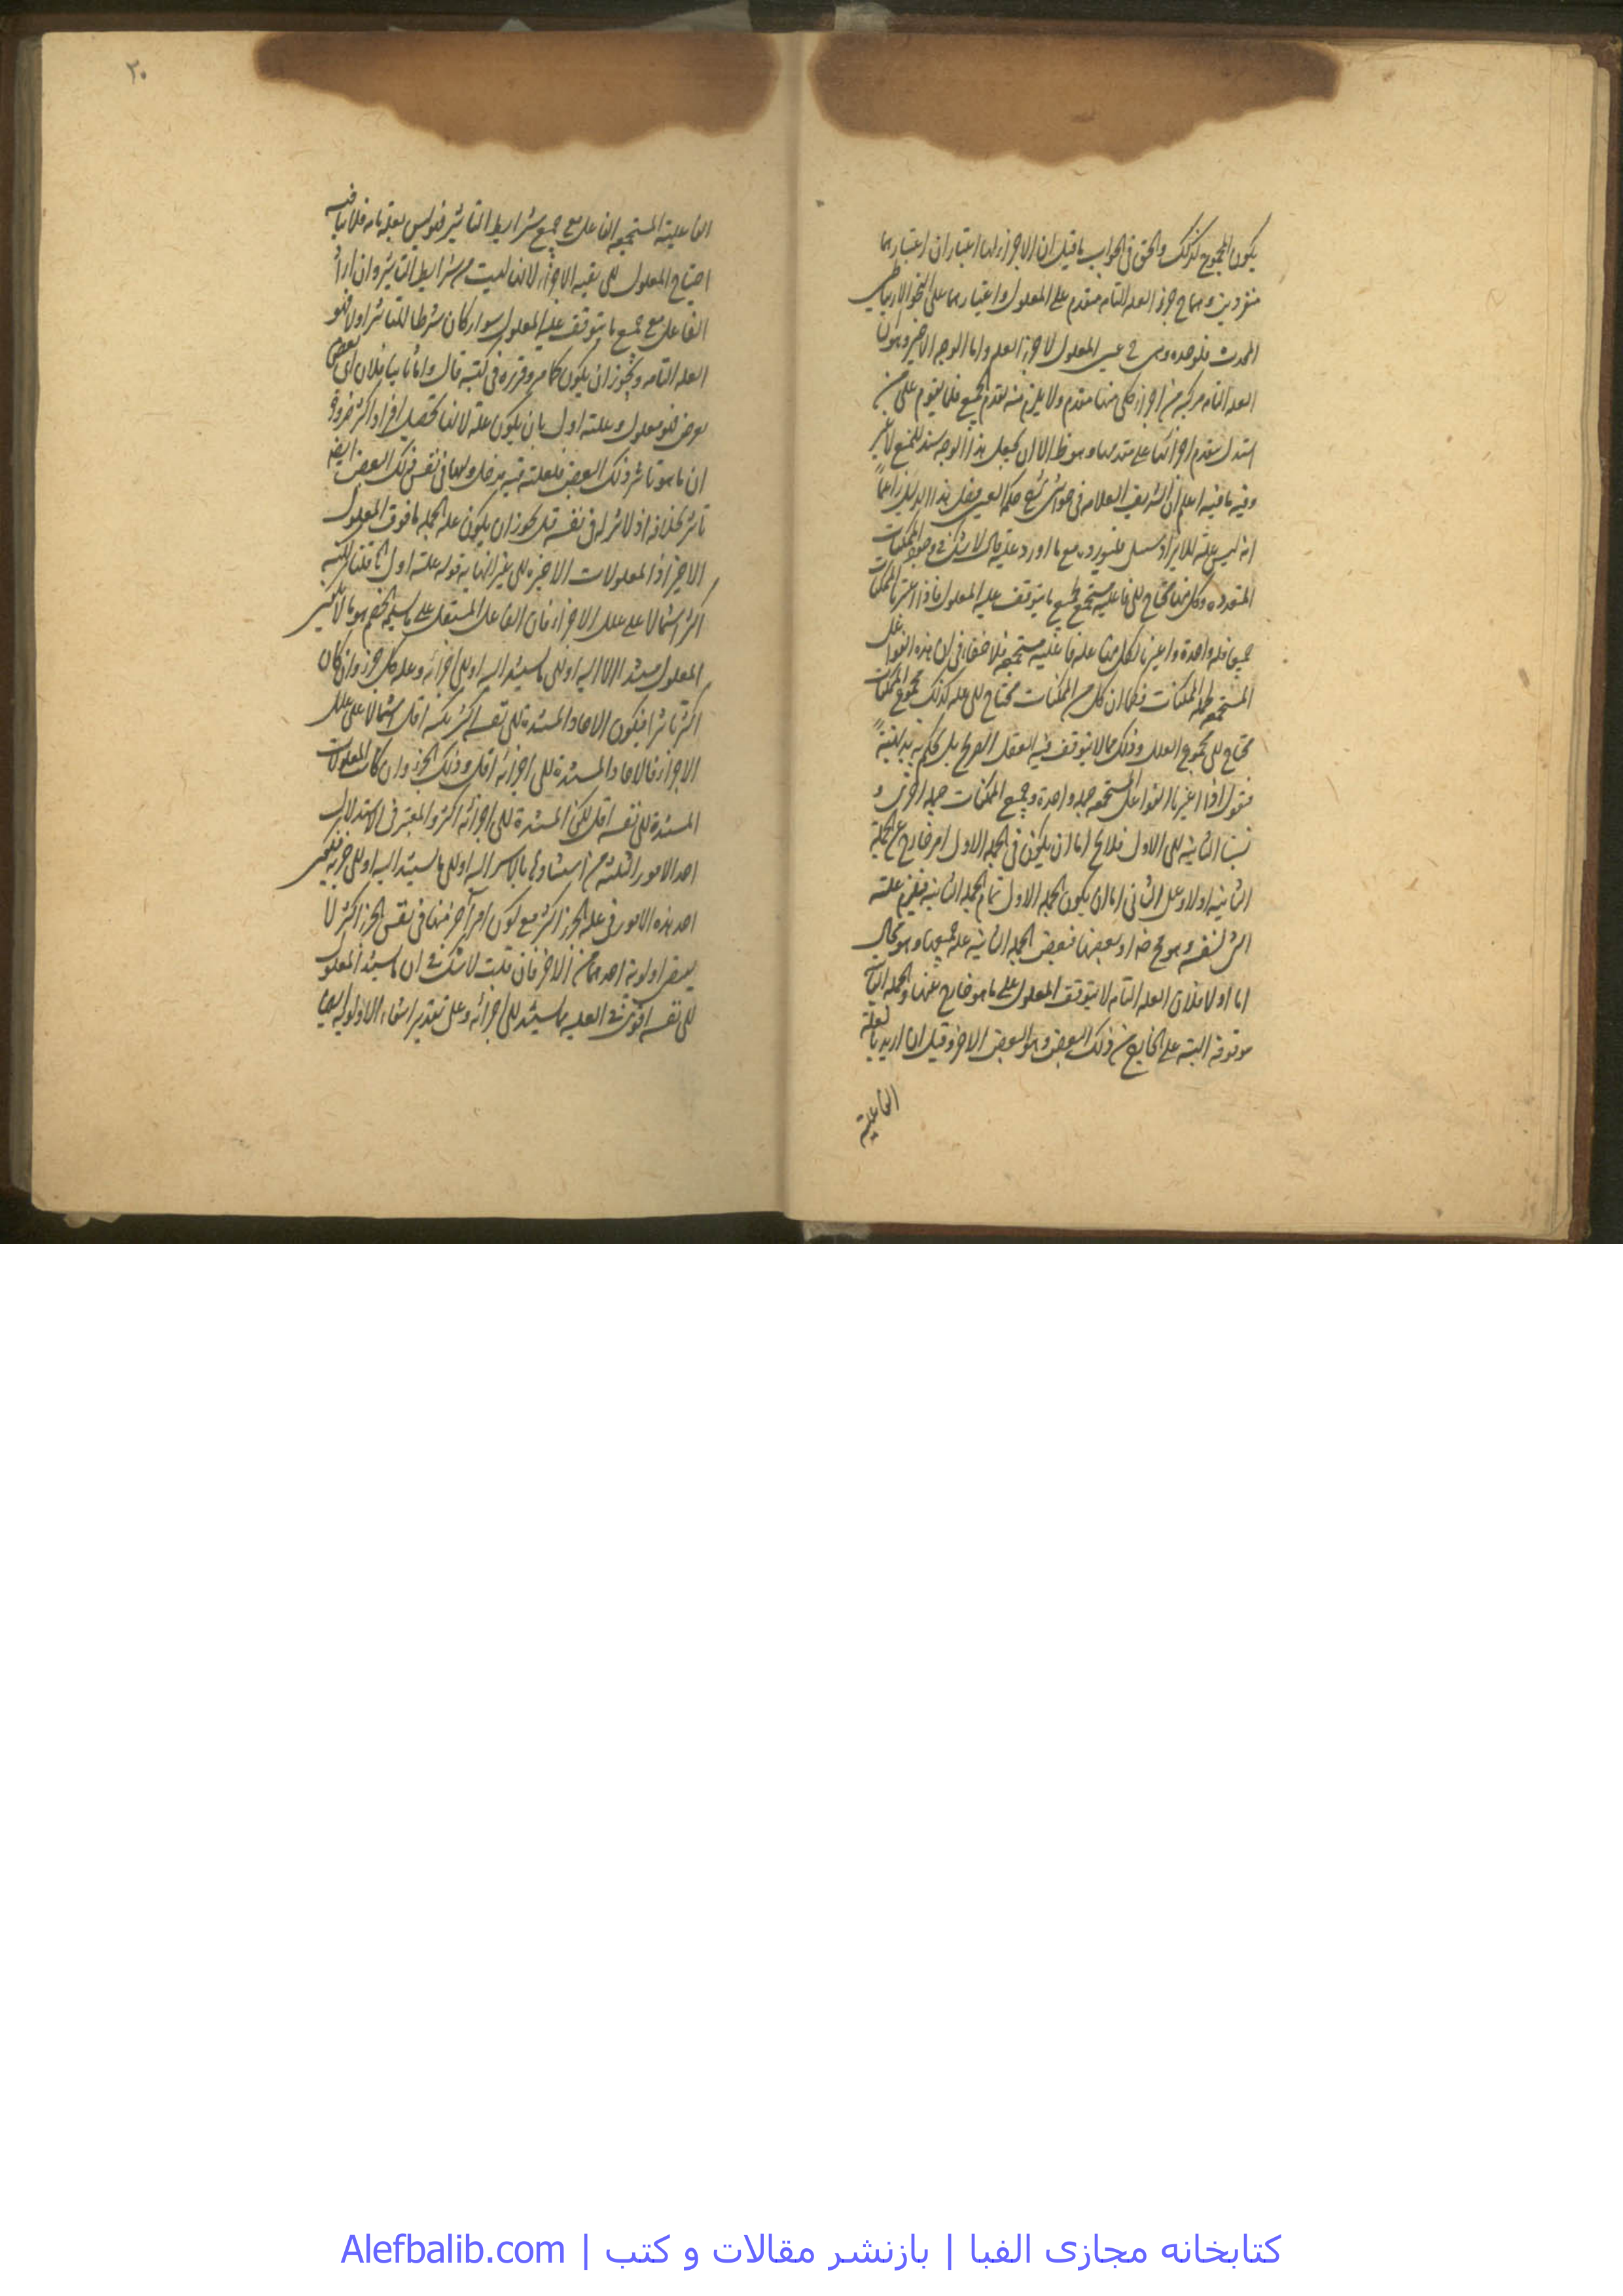 يكون المجموع كذلك والحق فى الجواب ما قيل ان الاجزاء لها اعتباران اعتبارها
منفردين وبها جزء العله التامه متقدم على المعلول واعتبارها على النحو الارتباطى
فلوحده وهى عين المعلول لا جزء العله واما الوجه الاخير وهو ان
العله التامه مركبه من اجزاء كل منها متقدم ولا يلزم منه تقدم الجميع فلا يقوم على من
استدل بتقدم اجزائها على تقدمها وهو ظ الا ان يجعل هذا الوجه سند للمنع لا غير
وفيه ما فيه اعلم ان الشريف العلامه فى حواشى شرح حكمه العين نقل هذا الدليل زاعماً
انه ليس عليه للايراد سبيل فلنورده مع ما اورد عليه قال لا شك فى وجود الممكنات
المتعدده وكل منها محتاج الى فاعليه مستجمع لجميع ما يتوقف عليه المعلول فاذا اعتبرنا الممكنات
جميعا جمله واحدة واعتبرنا لكل منها عله فاعليه مستجمعه فلا خفاء فى ان هذه الفواعل
المستجمعه لجملة الممكنات فكما ان كل من الممكنات محتاج الى عله كذلك مجموع الممكنات
محتاج الى مجموع العلل وذلك مما لا يتوقف فيه العقل الصريح بل يحكم به بديهة
فنقول اذا اعتبرنا الفواعل المستجمعه جمله واحدة وجميع الممكنات جمله اخرى و
نسبنا الثانيه الى الاولى فلا يخ اما ان يكون فى الجمله الاولى امر خارج عن الجملة
الثانيه اولا وعلى الثانى اما ان يكون الجمله الاولى تمام الجمله الثانيه فيلزم علية
الشى لنفسه وهو مح او بعضها فبعض الجمله الثانيه عله جميعها وهو محال
اما اولا فلان العله التامه لا يتوقف المعلول على ما هو خارج عنها والجمله الثانية
موقوفه البته على الخارج من ذلك البعض وهو البعض الاخر وقيل ان اريد بالعلة
الفاعلية
٢٠
الفاعلية المستجمعه الفاعل مع جميع شرايط التاثير فهو ليس بعله تامه فلا ينافيه
احتياج المعلول الى بقيه الاجزاء لانها ليست من شرايط التاثير وان اراد
الفاعل مع جميع ما يتوقف عليه المعلول سواء كان شرطا للتاثير اولا فهو
العله التامه ويجوز ان يكون كما مر وقرره فى كتبه قال واما ثانيا فلان اى بعض
يعرض فهو معلول وعلته اولى بان يكون عله لانها تحصل افرادا اكثر ضرورة
ان ما هو تاثير ذلك البعض فلعلته فيه مدخل ولها فى نفس ذلك البعض ايضا
تاثير بخلافه اذ لا تاثير له فى نفسه قيل يجوز ان يكون عله الجمله ما فوق المعلول
الاخير اذا لمعلولات الاخيره الى غير النهايه قوله علته اولى قلنا
اكثر اشتمالا على علل الاجزاء فان الفاعل المستقل على ما سلمه الخصم هو ما لا
المعلول مستند الا اليه او الى ما يستند اليه او الى اجزائه وعله كل جزء وان كان
اكثر تاثيرا فيكون الاحاد المستندة الى نفسه اكثر لكنه اقل اشتمالا على علل
الاجزاء فالاحاد المستندة الى اجزائه اقل وذلك الجزء وان كانت المعلولات
المستندة الى نفسه اقل لكن المستندة الى اجزائه اكثر والمعتبر فى الاستدلال
احد الامور الثلثه من اليه او الى ما يستند اليه او الى جزئه
احد هذه الامور فى عله الجزء اكثر مع كون امر آخر منها فى نفس الجزء اكثر لا
اولوية احدهما من الاخر فان قلت لا شك فى ان ما يستند المعلول
الى نفسه اقوى فى العليه مما يستند الى اجزائه وعلى تقدير انتفاء الاولوية
کتابخانه مجازی الفبا | بازنشر مقالات و کتب | Alefbalib.com